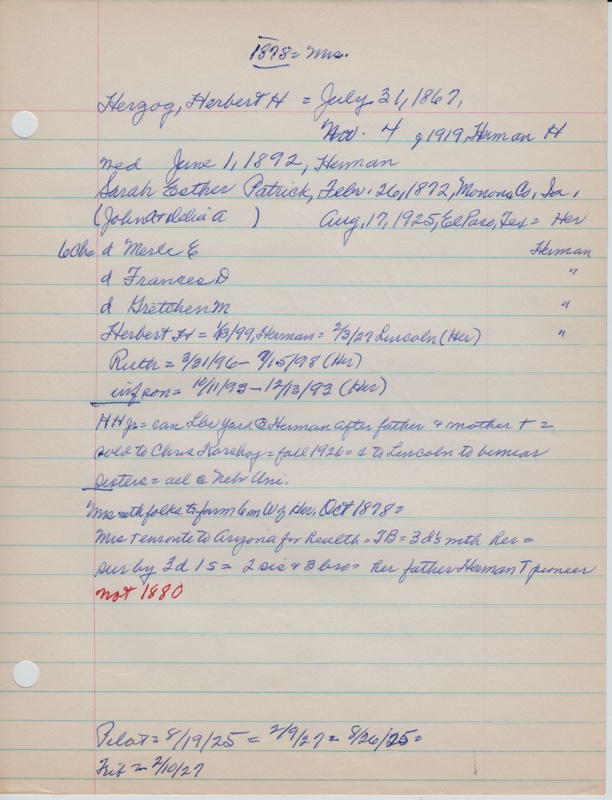 1878 = Mrs.
Herzog, Herbert H = July 31, 1867,
Nov. 4, 1919, Herman H
med June 1, 1892, Herman
Sarah Esther Patrick, Febr. 26, 1872, Monona Co, Ia,
(John & Delia A ) Aug, 17, 1925, El Paso, Tex = Her
6 Ch = d Merle E Herman
d Frances D "
d Gretchen M "
Herbert Jr = 1/3/99, Herman = 2/3/27 Lincoln (Her) "
Ruth = 3/31/96 - 7/15/98 (Her)
inf son = 10/11/93 - 12/13/93 (Her)
HH Jr = ran Lbr yard @ Herman after father & mother + =
sold to Chris = fall 1926 = & to Lincoln to be near
sisters = all @ Nebr Uni.
Mrs = with folks to farm 6 m W of Her. Oct 1878 =
Mrs + enroute to Arizona for health = TB = 3 d's with her =
sur by 3 d 1 s = 2 sis & 3 bro = her father Herman T pioneer
not 1880
Pilot = 8/19/25 = 2/9/27 = 8/26/25 =
Trib = 2/10/27